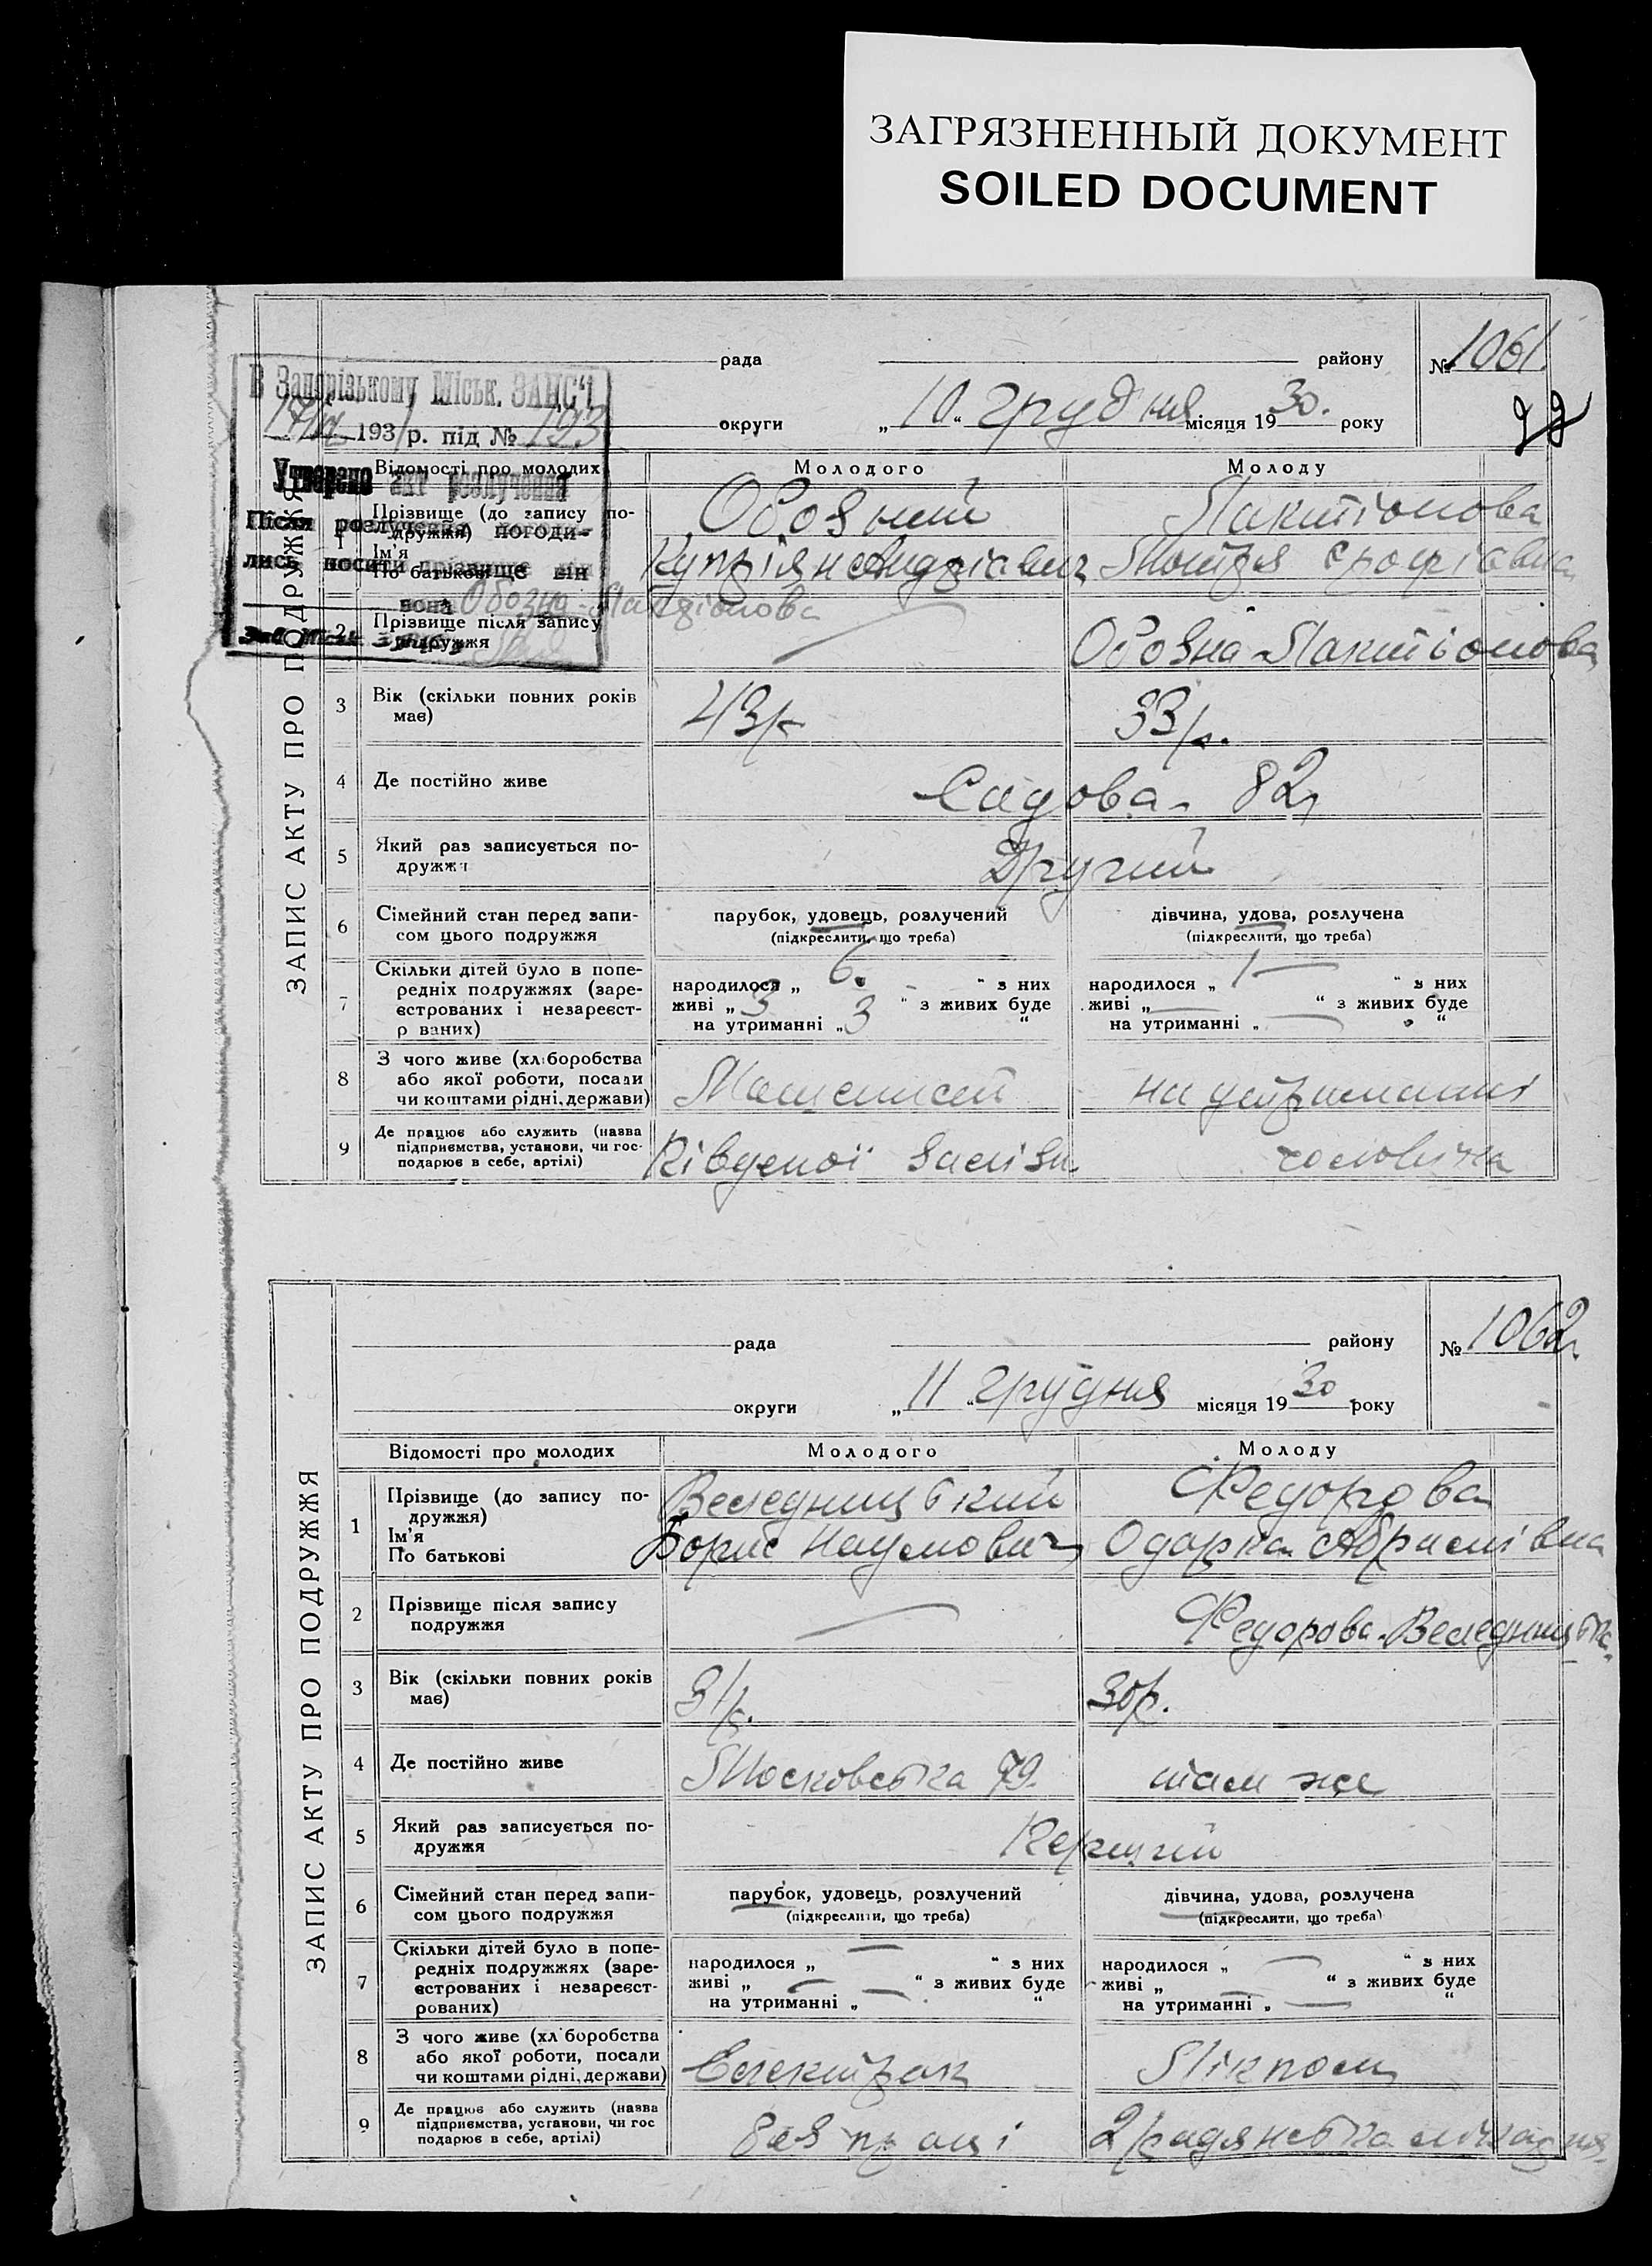 ЗАГРЯЗНЕННЫЙ ДОКУМЕНТ
SOILED DOCUMENT
ЗАПИС АКТУ ПРО ПОДРУЖЖЯ
рада району № 1061.
округи „10“ грудня місяця 1930. року
В Запорізькому Міськ. ЗАГС'і
1931 р. під № 123
Утворено акт розлучення
Після розлучення погоди-
лись носити прізвище він
вона Обозна-Лактіонова
Відомості про молодих Молодого Молоду
1 Прізвище (до запису по-
дружжя) Обозний Лактіонова
Ім'я
По батькові Купріян Андріевич Мотря
2 Прізвище після запису
подружжя — Обозна-Лактіонова
3 Вік (скільки повних років
має) 43 р. 33 р.
4 Де постійно живе Садова 82
5 Який раз записується по-
дружжя Другий
6 Сімейний стан перед запи-
сом цього подружжя парубок, удовець, розлучений дівчина, удова, розлучена
(підкреслити, що треба) (підкреслити, що треба)
7 Скільки дітей було в попе-
редніх подружжях (заре-
єстрованих і незареєст-
рованих)
народилося „ 6. “ з них народилося „ 1 “ з них
живі „ 3 “ з живих буде живі „ — “ з живих буде
на утриманні „ 3 “ на утриманні „ — “
8 З чого живе (хліборобства
або якої роботи, посади
чи коштами рідні, держави) на утриманні
9 Де працює або служить (назва
підприємства, установи, чи гос-
подарює в себе, артілі) Південої заліз. чоловіка
ЗАПИС АКТУ ПРО ПОДРУЖЖЯ
рада району № 1062
округи „11“ грудня місяця 1930 року
Відомості про молодих Молодого Молоду
1 Прізвище (до запису по-
дружжя) Веледницький Федорова
Ім'я
По батькові Борис Наумович Одарка Абрамівна
2 Прізвище після запису
подружжя — Федорова-Веледницька
3 Вік (скільки повних років
має) 31 р. 30 р.
4 Де постійно живе Московська 79. там же
5 Який раз записується по-
дружжя Перший
6 Сімейний стан перед запи-
сом цього подружжя парубок, удовець, розлучений дівчина, удова, розлучена
(підкреслити, що треба) (підкреслити, що треба)
7 Скільки дітей було в попе-
редніх подружжях (заре-
єстрованих і незареєст-
рованих)
народилося „ — “ з них народилося „ — “ з них
живі „ — “ з живих буде живі „ — “ з живих буде
на утриманні „ — “ на утриманні „ — “
8 З чого живе (хліборобства
або якої роботи, посади
чи коштами рідні, держави) Лікпом
9 Де працює або служить (назва
підприємства, установи, чи гос
подарює в себе, артілі) без праці 2 радянська лічарня